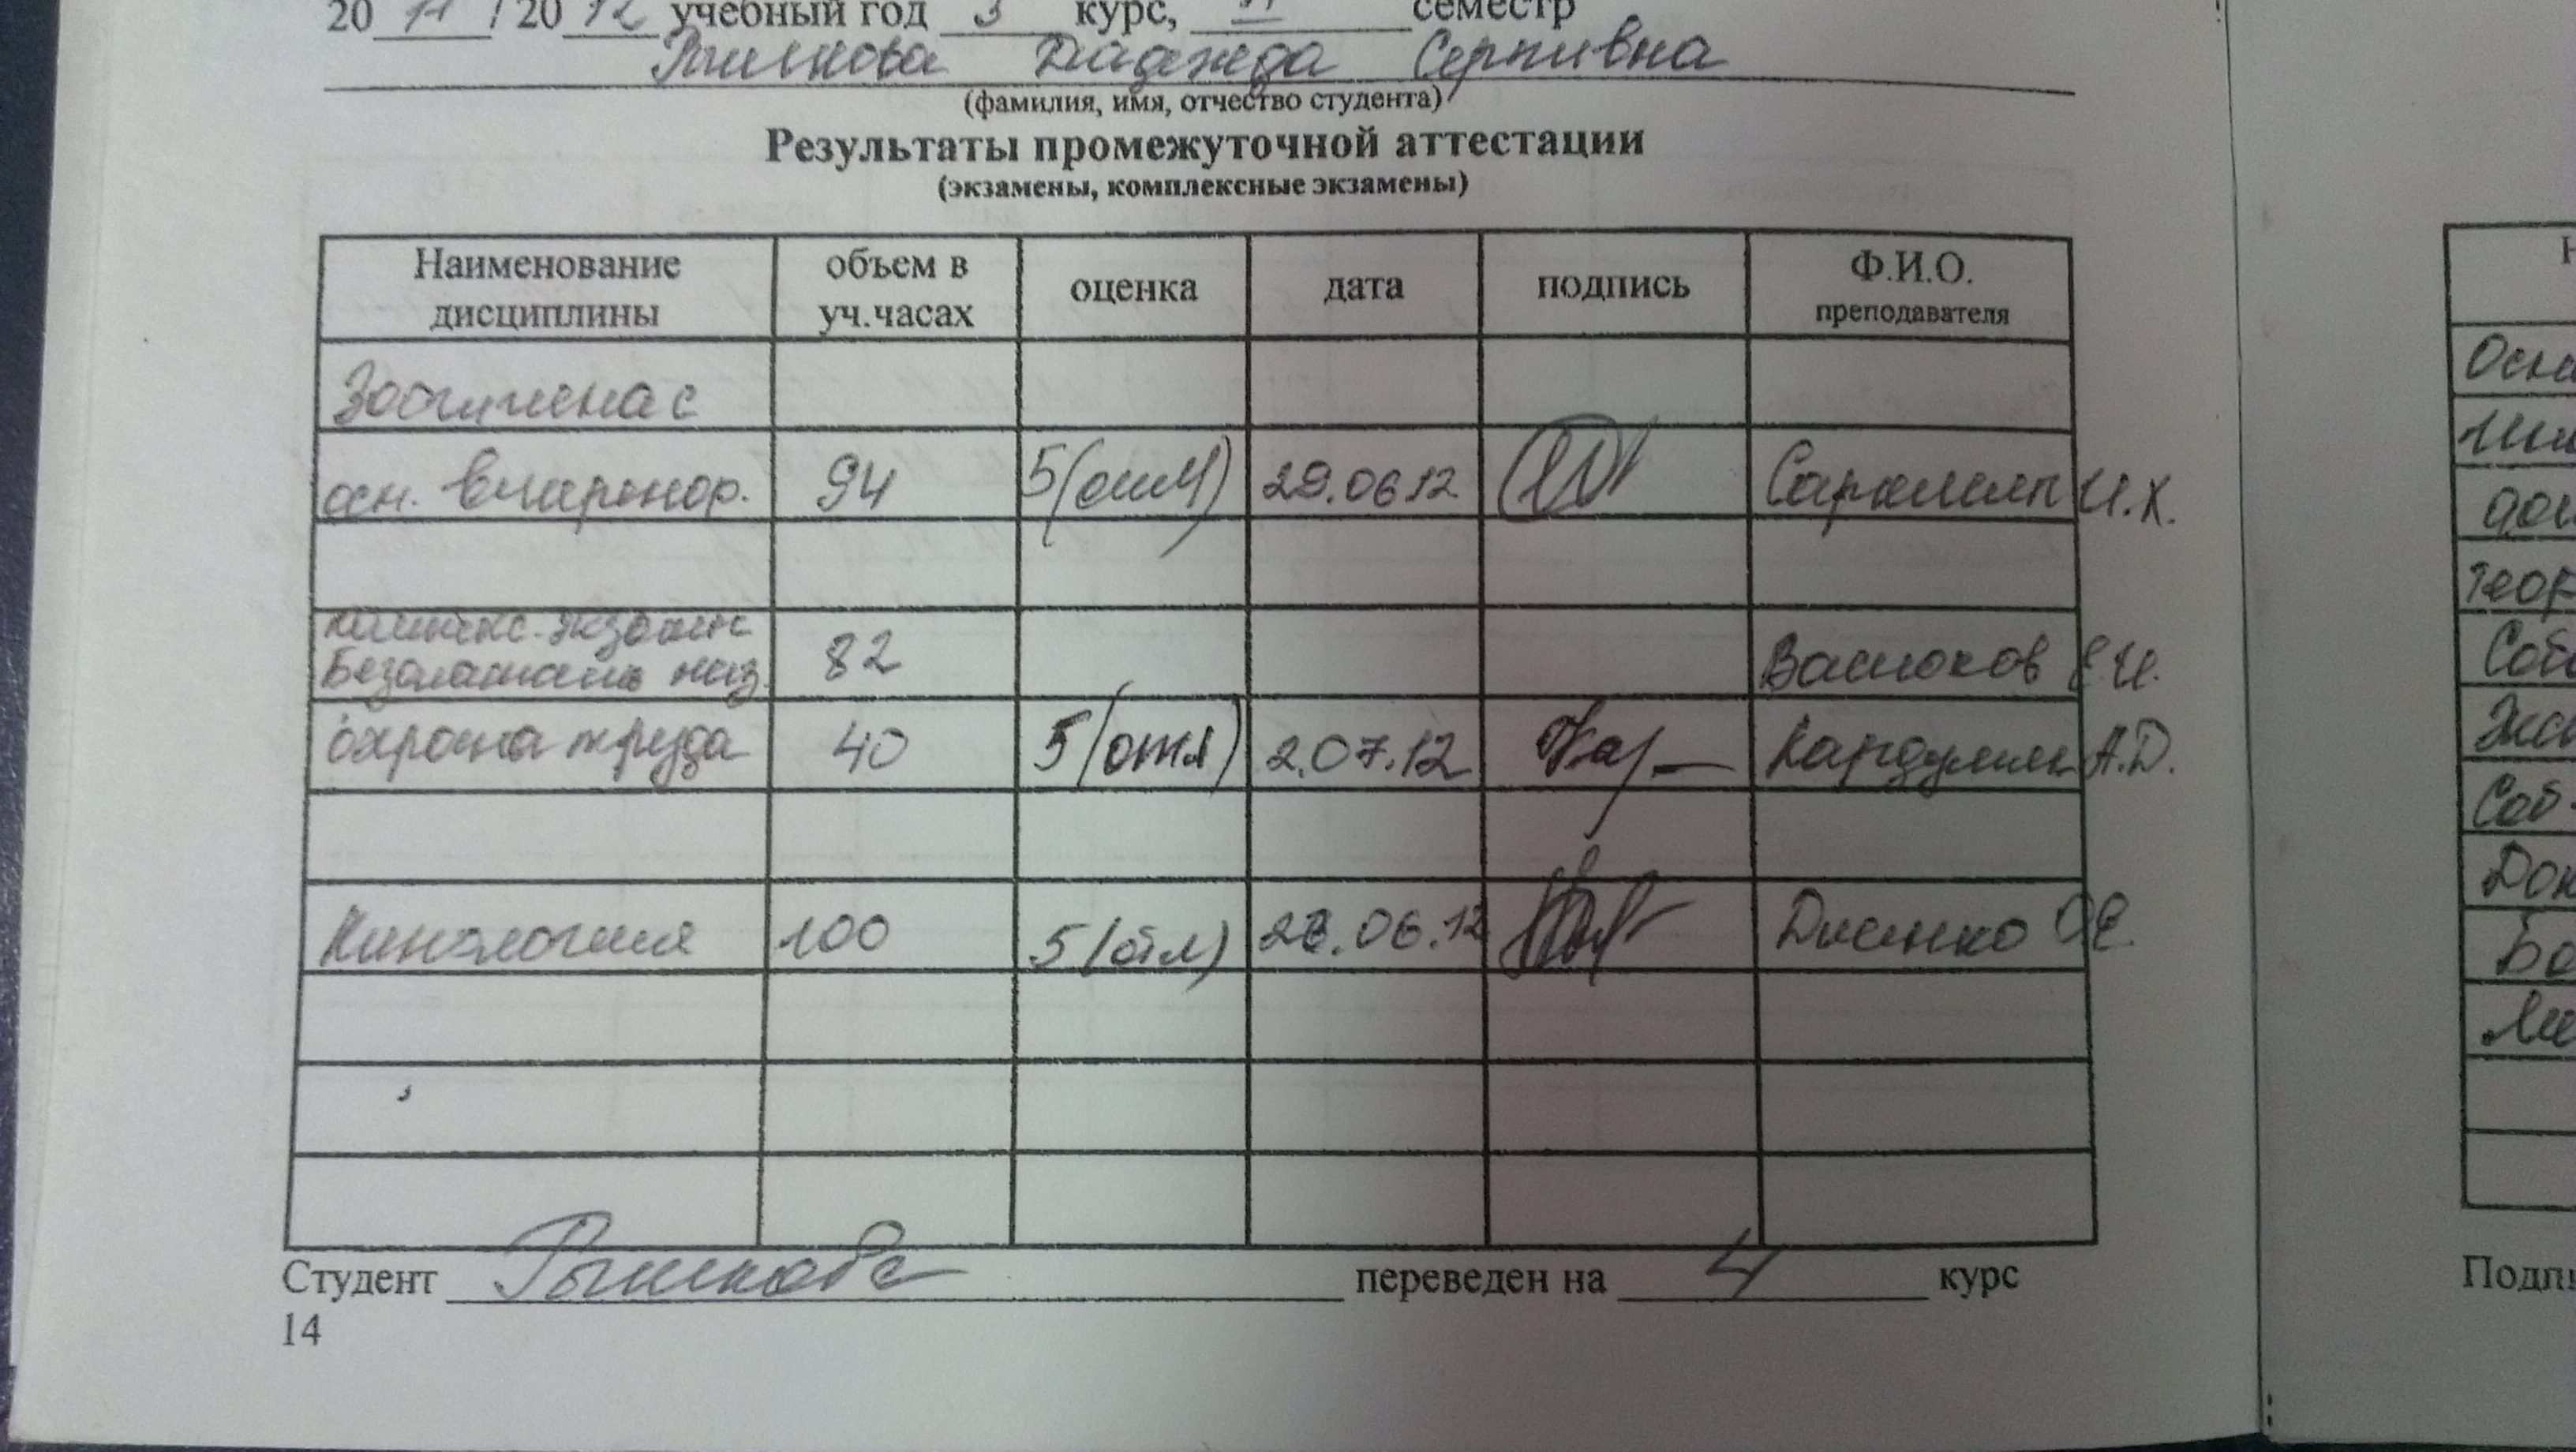 20 11 / 20 12 учебный год 3 курс, VI семестр
Рышкова Надежда Сергеевна
(фамилия, имя, отчество студента)
Результаты промежуточной аттестации
(экзамены, комплексные экзамены)
Наименование дисциплины объем в уч.часах оценка дата подпись Ф.И.О. преподавателя
Зоогигиена с
осн. ветеринор. 94 5(отл) 29.06 12 И.Х.
комплекс. экзамен
Безопасность жиз. 82 Васюков Е.И.
охрана труда 40 5(отл) 2.07.12 А.Д.
Кинология 100 5(отл) 28.06.12 О.Е.
Студент Рышкова переведен на 4 курс
14
Н
Осно
теор
Соб
Экс
Соб
Док
Бо
Подп